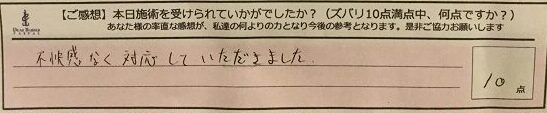 【ご感想】本日施術を受けられていかがでしたか？（ズバリ10点満点中、何点ですか？）
あなた様の率直な感想が、私達の何よりの力となり今後の参考となります。是非ご協力お願いします
不快感なく対応していただきました。
10点